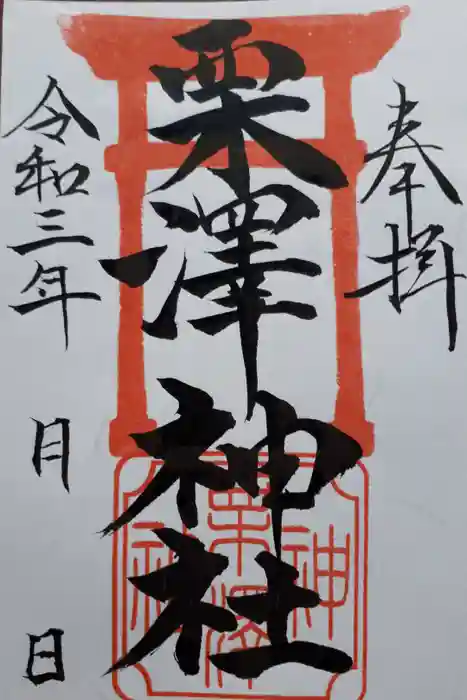 奉拝
栗澤神社
令和三年 月 日
栗澤
神社